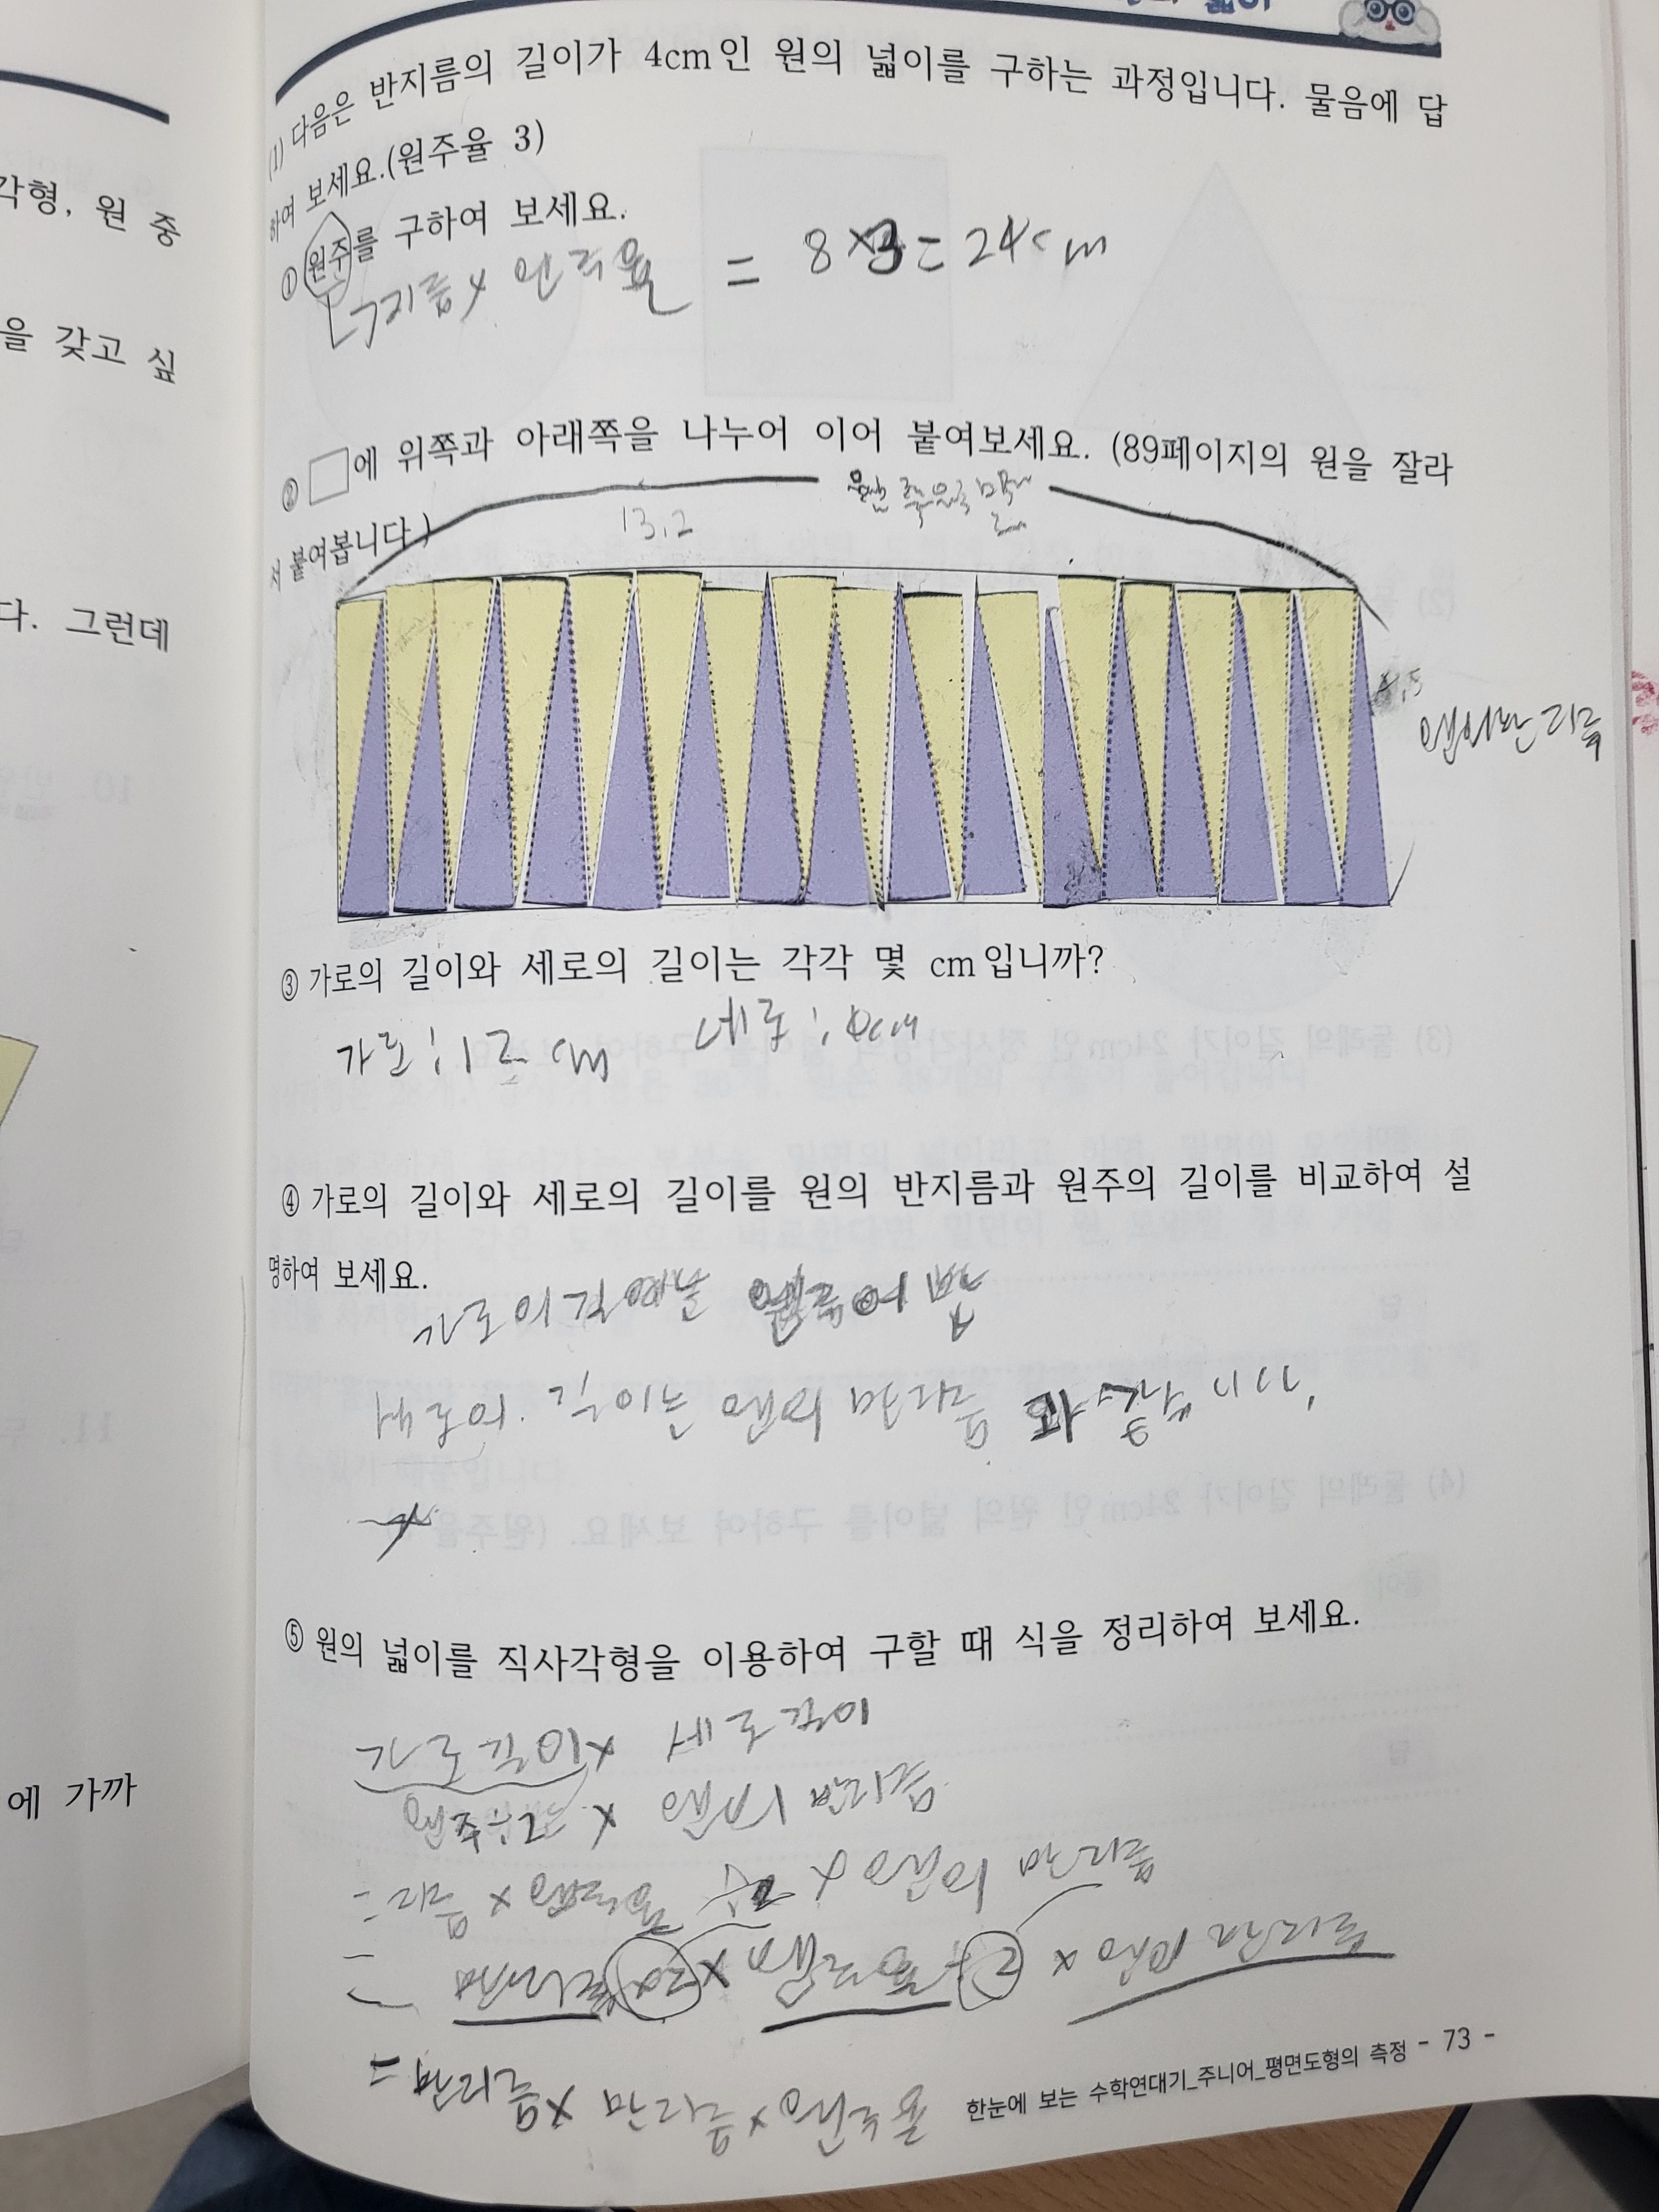 각형, 원 중
을 갖고 싶
다. 그런데
에 가까
넓이
(1) 다음은 반지름의 길이가 4cm인 원의 넓이를 구하는 과정입니다. 물음에 답
하여 보세요.(원주율 3)
① 원주를 구하여 보세요.
지름 × 원주율 = 8×3=24cm
② □에 위쪽과 아래쪽을 나누어 이어 붙여보세요. (89페이지의 원을 잘라
서 붙여봅니다.)
13.2
③ 가로의 길이와 세로의 길이는 각각 몇 cm입니까?
가로:12cm 세로:4cm
④ 가로의 길이와 세로의 길이를 원의 반지름과 원주의 길이를 비교하여 설
명하여 보세요.
가로의
세로의 길이는 원의 반지름과 같습니다.
⑤ 원의 넓이를 직사각형을 이용하여 구할 때 식을 정리하여 보세요.
가로길이× 세로길이
원주÷2 × 원의 반지름
=지름 × 원주율 ÷2 × 원의 반지름
= 반지름×2× 원주율÷2 × 원의 반지름
= 반지름× 반지름×원주율
한눈에 보는 수학연대기_주니어_평면도형의 측정 - 73 -